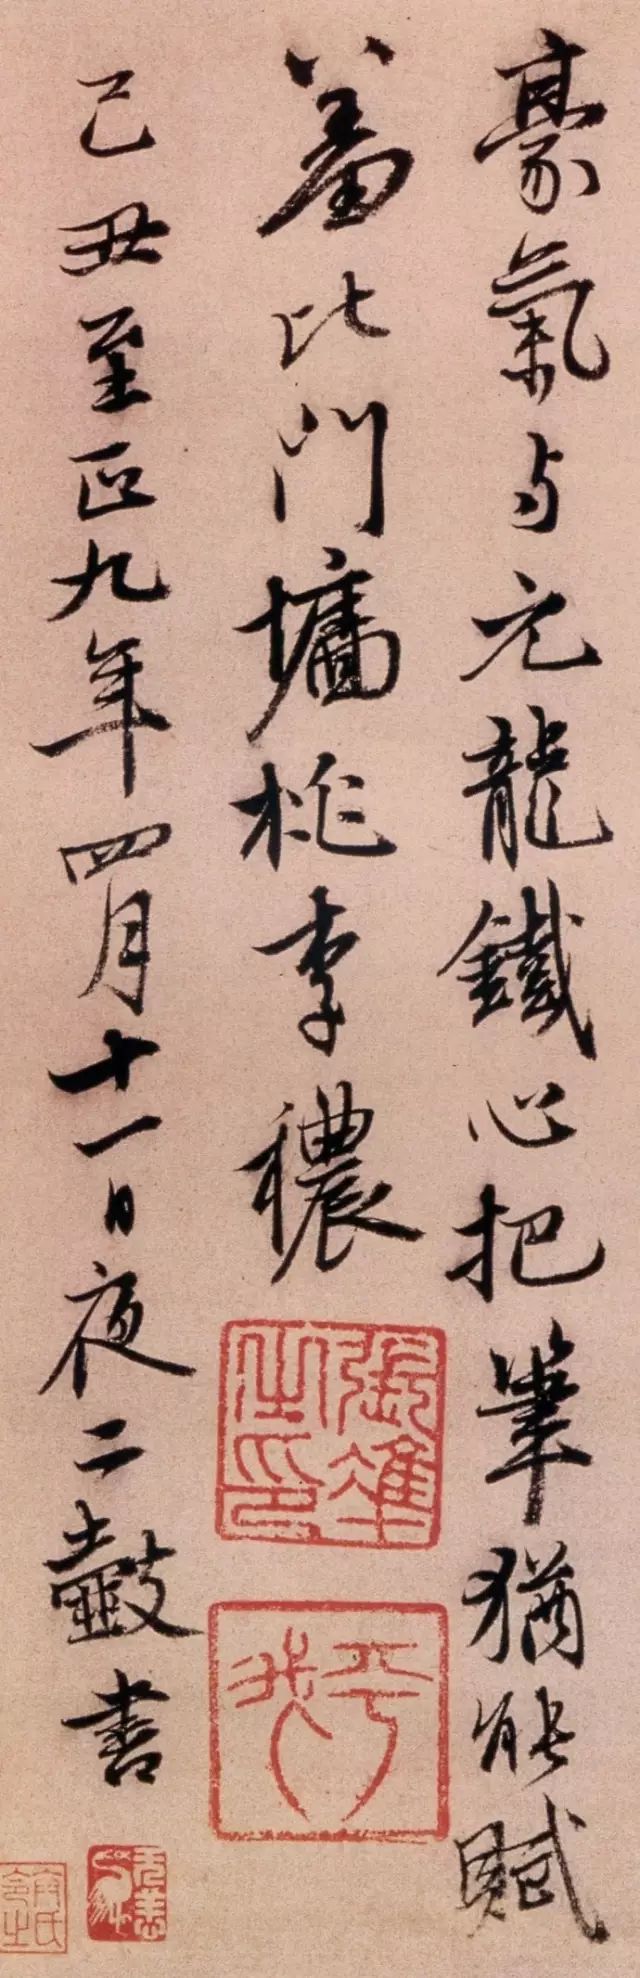 豪氣与元龍鐵心把筆猶能賦
羞比門墻桃李穠
己丑至正九年四月十一日夜二鼓書
張雄之印